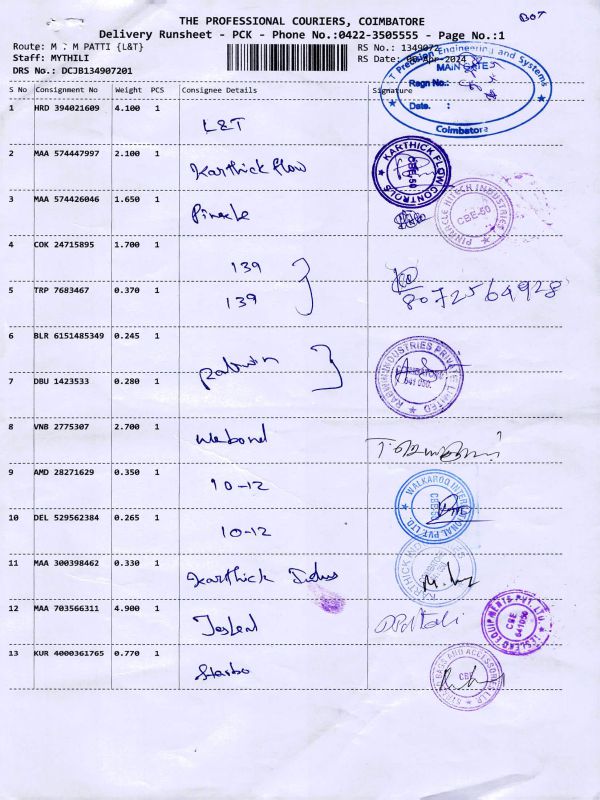 THE PROFESSIONAL COURIERS, COIMBATORE
Delivery Runsheet - PCK - Phone No.:0422-3505555 - Page No.:1
Route: M M PATTI {L&T}
RS No.: 1349072
Staff: MYTHILI
RS Date: Apr-2024
DRS No.: DCJB134907201
T Precision Engineering and Systems
MAIN GATE
Regn No.:
Date. :
Coimbatore
S No Consignment No Weight PCS Consignee Details Signature
1 HRD 394021609 4.100 1 L&T
2 MAA 574447997 2.100 1 Karthick flow
KARTHICK FLOW CONTROLS
CBE-50
3 MAA 574426046 1.650 1
PINNACLE HITECH INDUSTRIES
CBE-50
4 COK 24715895 1.700 1 139
5 TRP 7683467 0.370 1 139 8072564928
6 BLR 6151485349 0.245 1
INDUSTRIES PRIVATE LIMITED
641 050.
7 DBU 1423533 0.280 1
8 VNB 2775307 2.700 1 Webond
9 AMD 28271629 0.350 1 10-12
WALKAROO INTERNATIONAL PVT. LTD.
10 DEL 529562384 0.265 1 10-12
11 MAA 300398462 0.330 1 Karthick
12 MAA 703566311 4.900 1
TESLEAD EQUIPMENTS PVT. LTD.
CBE
641050
13 KUR 4000361765 0.770 1
BAGS AND ACCESSORIES LLP
CBE